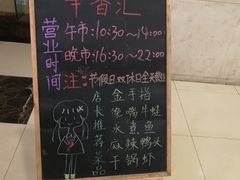 千香汇
营业时间
午市:10:30~14:00
晚市:16:30~22:00
注:节假日双休日全天营业
店长推荐菜品
金手指
馋嘴牛蛙
水煮鱼
麻辣鸭头
干锅虾